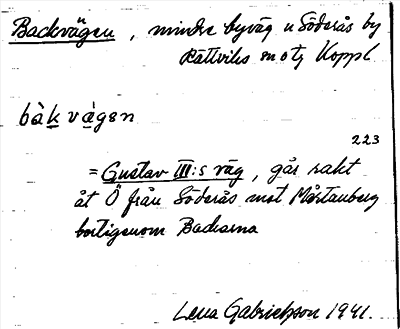 Backvägen, mindre byväg u Söderås by
Rättviks m o tg Koppl
bàkvágen
223
= Gustav III:s väg, går rakt
åt Ö från Söderås mot Mårtanberg
bortigenom Backarna
Lena Gabrielsson 1941.